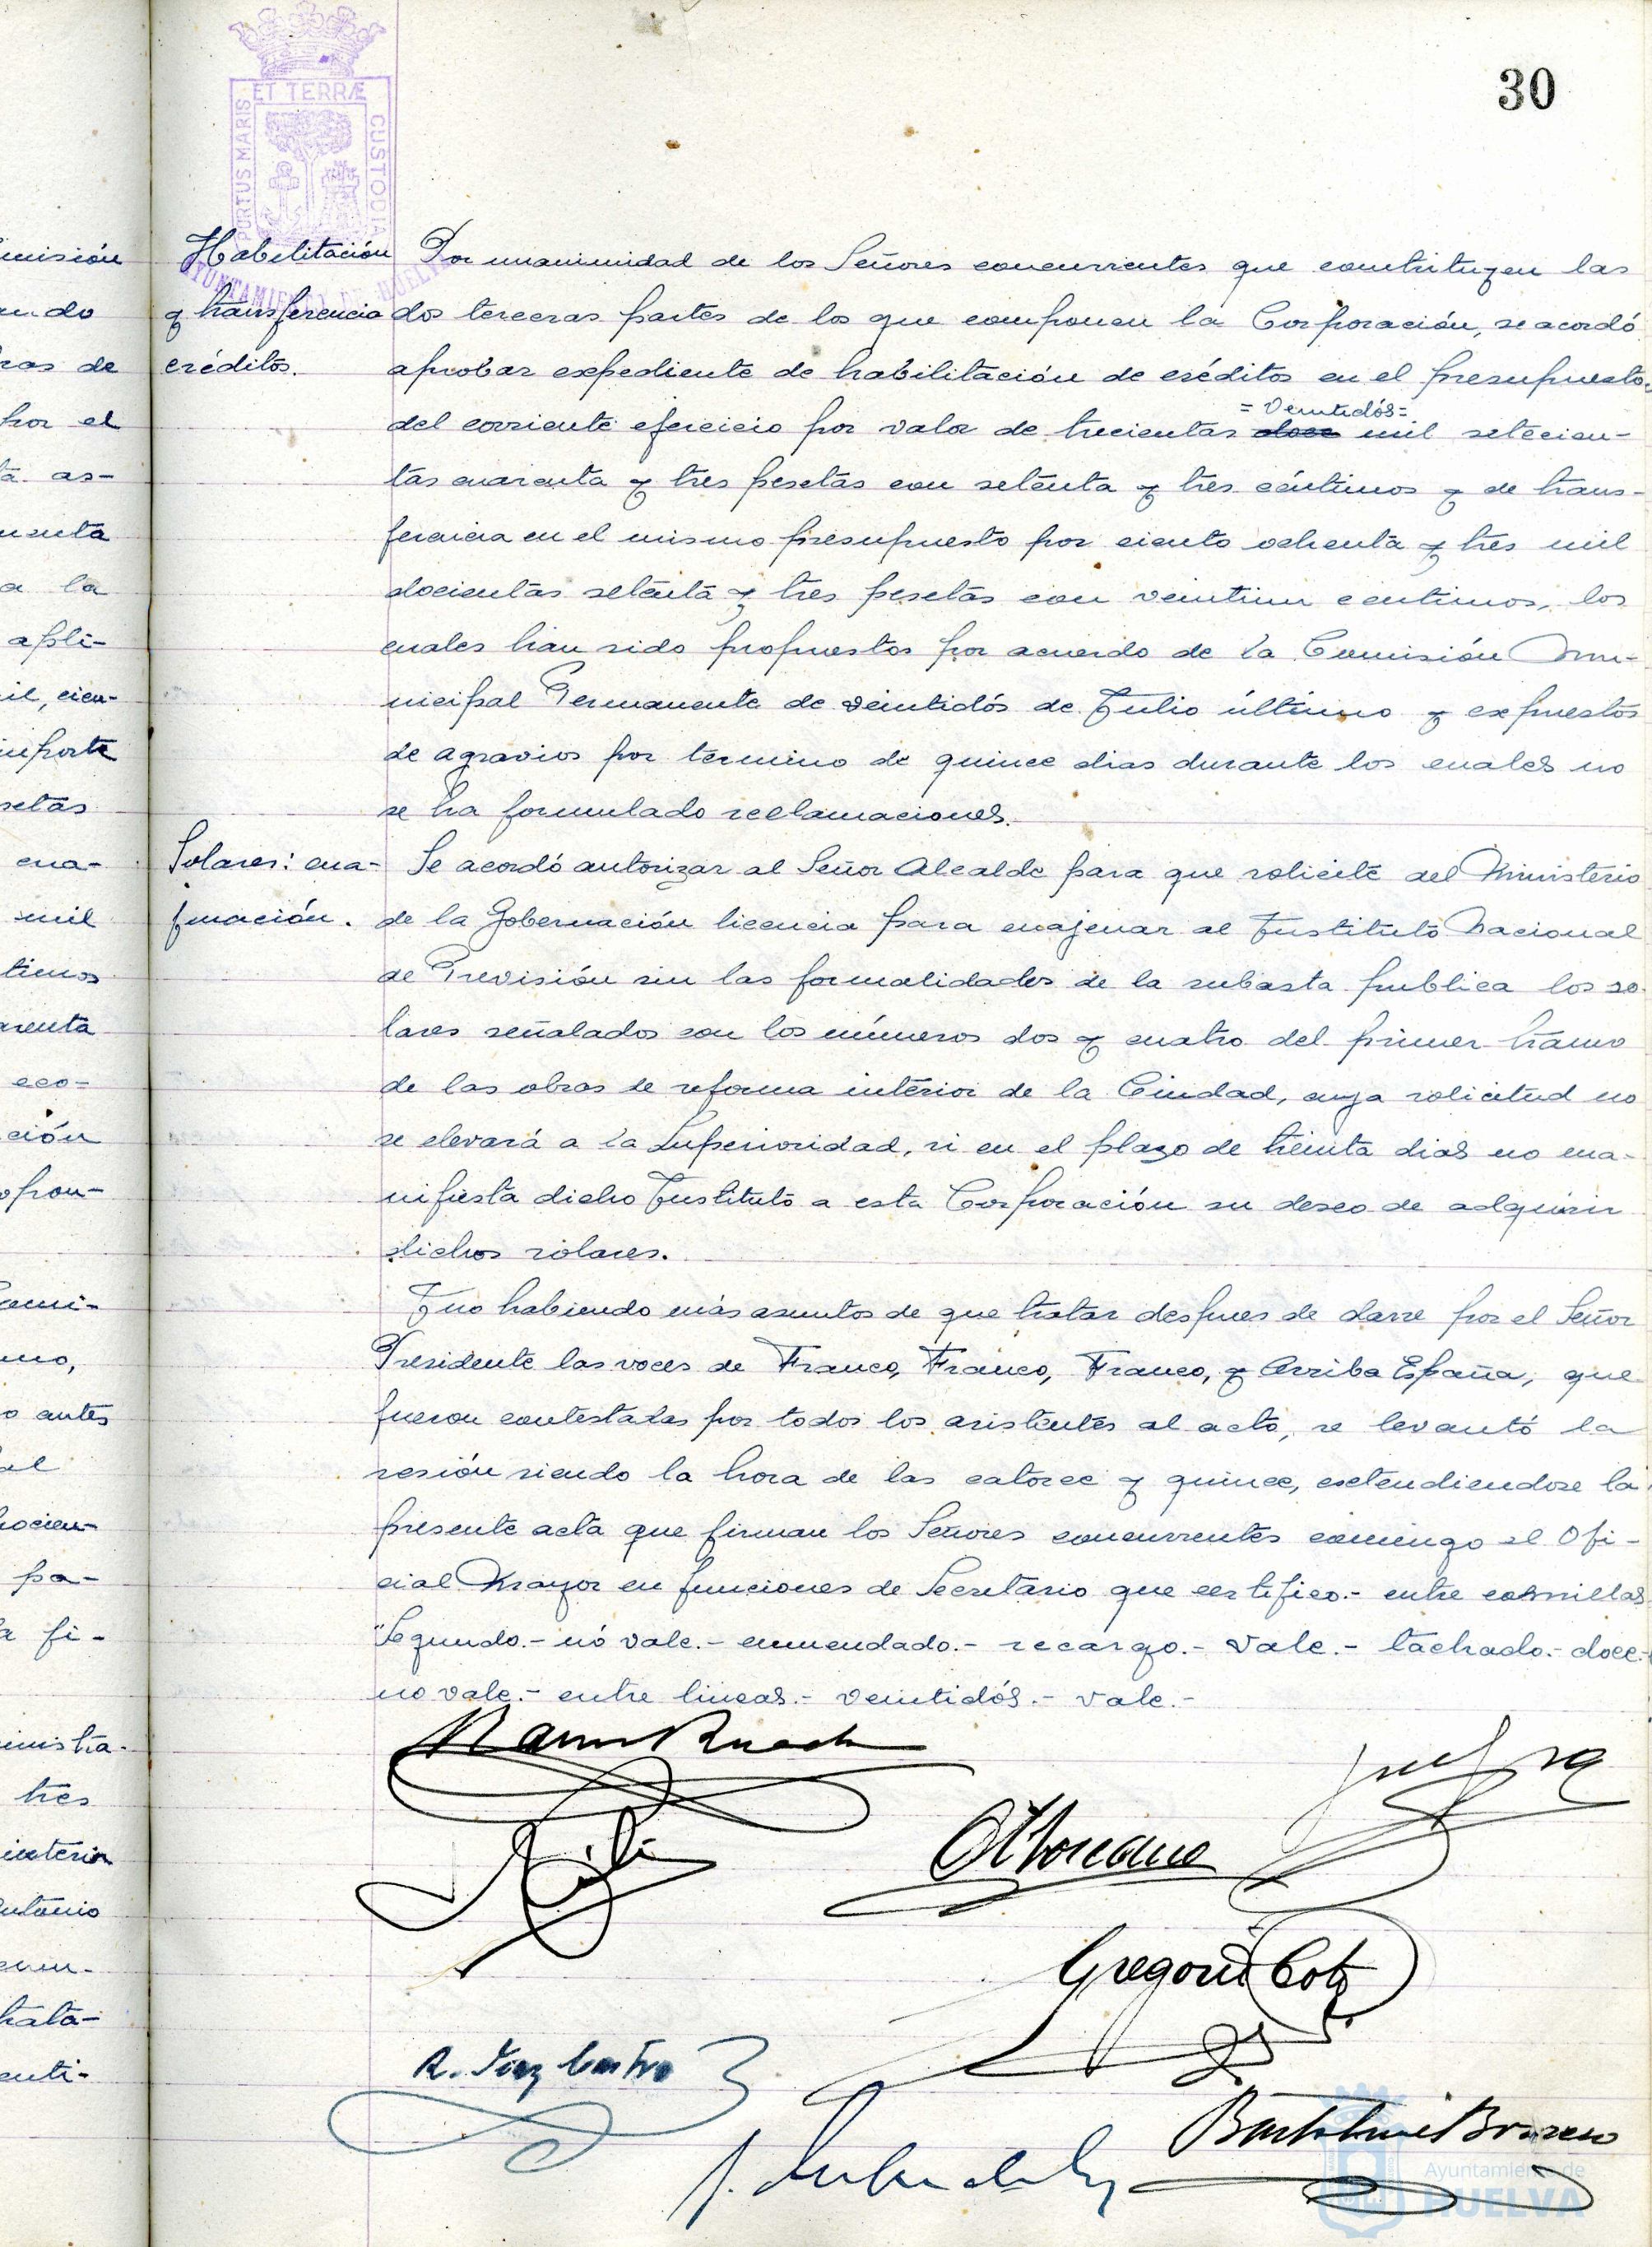 30
PORTUS MARIS ET TERRÆ CUSTODIA
AYUNTAMIENTO DE HUELVA
Habilitación
y transferencia
créditos.
Por unanimidad de los Señores concurrentes que constituyen las
dos terceras partes de los que componen la Corporación, se acordó
aprobar expediente de habilitación de créditos en el presupuesto
= Veintidós =
del corriente ejercicio por valor de trecientas doce mil setecien-
tas cuarenta y tres pesetas con setenta y tres céntimos y de trans-
ferencia en el mismo presupuesto por ciento ochenta y tres mil
docientas setenta y tres pesetas con veintiun centimos, los
cuales han sido propuestos por acuerdo de la Comisión Mu-
nicipal Permanente de veintidós de Julio último y expuestos
de agravios por termino de quince dias durante los cuales no
se ha formulado reclamaciones.
Solares: ena-
jenación.
Se acordó autorizar al Señor Alcalde para que solicite del Ministerio
de la Gobernación licencia para enajenar al Instituto Nacional
de Previsión sin las formalidades de la subasta publica los so-
lares señalados con los números dos y cuatro del primer tramo
de las obras de reforma interior de la Ciudad, cuya solicitud no
se elevará a la Superioridad, si en el plazo de treinta dias no ma-
nifiesta dicho Instituto a esta Corporación su deseo de adquirir
dichos solares.
Y no habiendo más asuntos de que tratar despues de darse por el Señor
Presidente las voces de Franco, Franco, Franco, y Arriba España, que
fueron contestadas por todos los asistentes al acto, se levantó la
sesión siendo la hora de las catorce y quince, extendiendose la
presente acta que firman los Señores concurrentes conmigo el Ofi-
cial Mayor en funciones de Secretario que certifico.- entre comillas
"Segundo.- nó vale.- enmendado.- recargo.- vale.- tachado.- doce.-
no vale.- entre lineas.- veintidós.- vale.-
Gregorio
R. Diaz Castro
Bartolomé
Ayuntamiento de
HUELVA
misión
ando
ras de
por el
as-
a la
apli-
mil, cien-
importe
setas
ena-
mil
timos
eco-
ción
antes
al
pa-
la fi-
tres
interior
Antonio